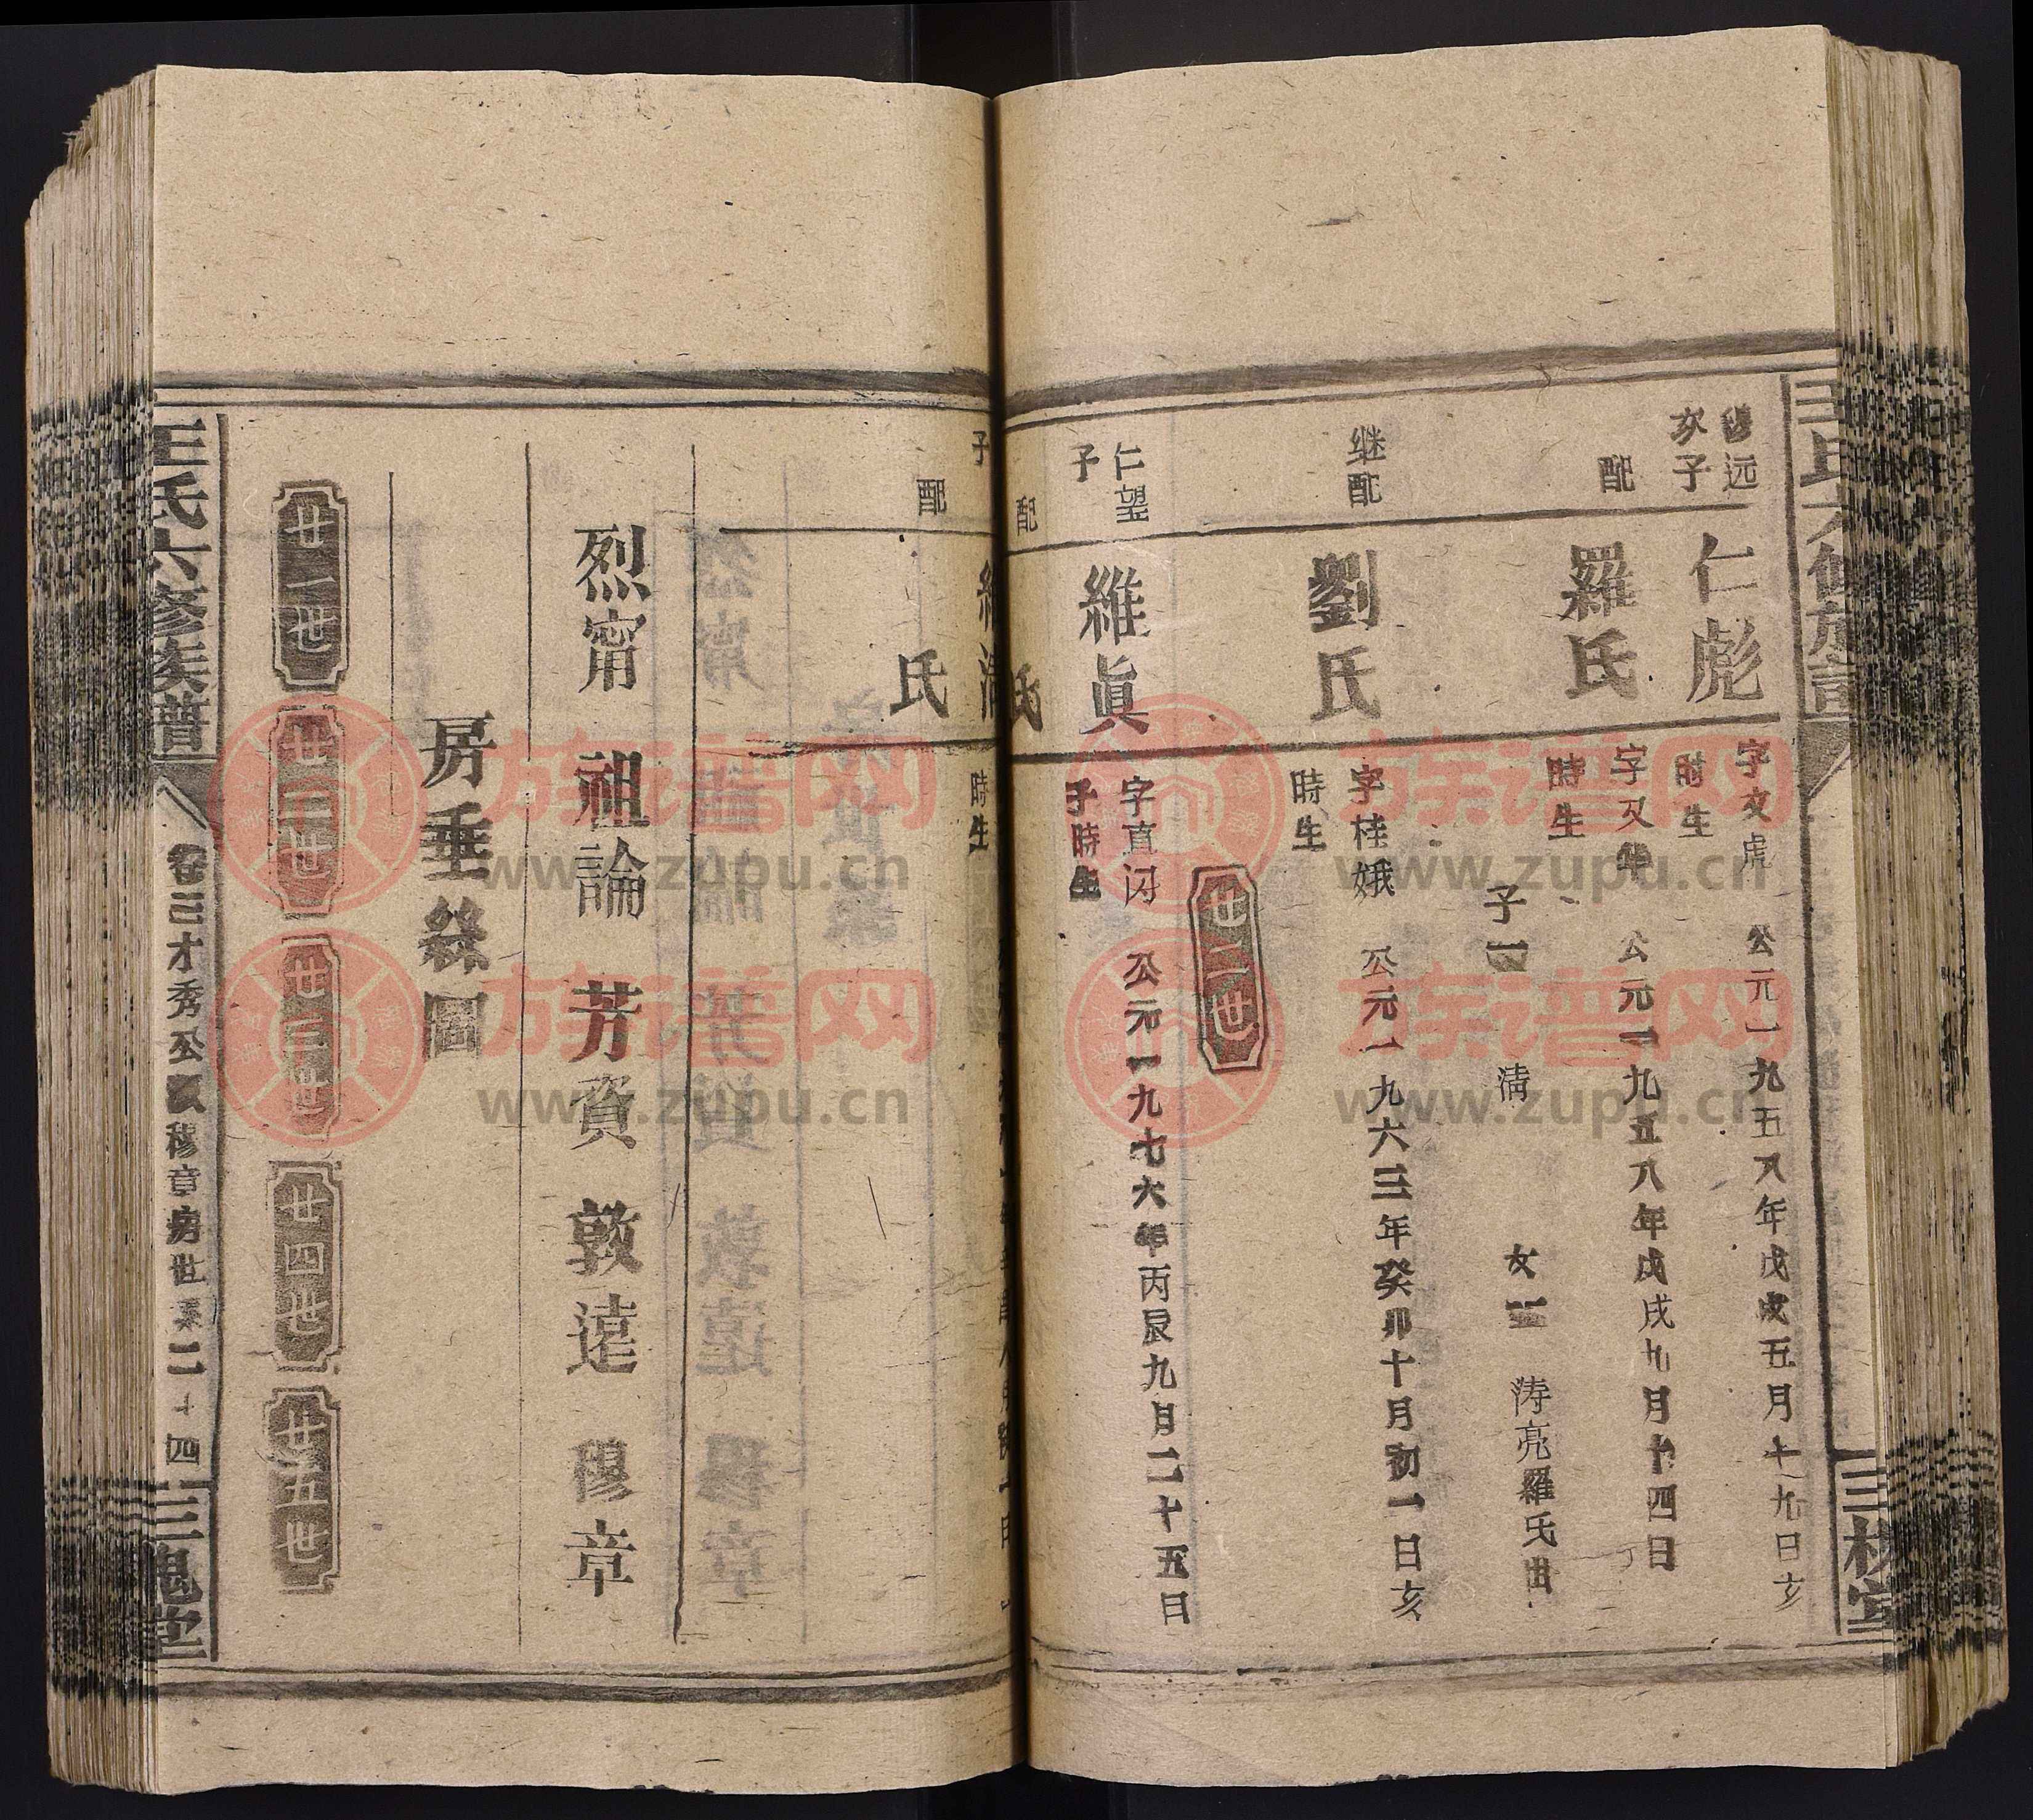 远
次子
仁彪
字文虎 公元一九五八年戊戌五月十九日亥
時生
配
羅氏
字又年 公元一九五八年戊戌九月十四日
時生
子一 清 女二 涛亮羅氏出
继配
劉氏
字桂娥 公元一九六三年癸卯十月初一日亥
時生
廿二世
仁望
子
維眞
字直 公元一九七六年丙辰九月二十五日
子時生
配
氏
子
維清
時生
配
氏
烈甯 祖論 芳資 敦遠 穆章
房垂絲圖
廿一世 廿二世 廿三世 廿四世 廿五世
王氏六修族譜
卷三才秀公 穆章房世系二十四
三槐堂
族谱网
www.zupu.cn
族谱网
www.zupu.cn
族谱网
www.zupu.cn
族谱网
www.zupu.cn